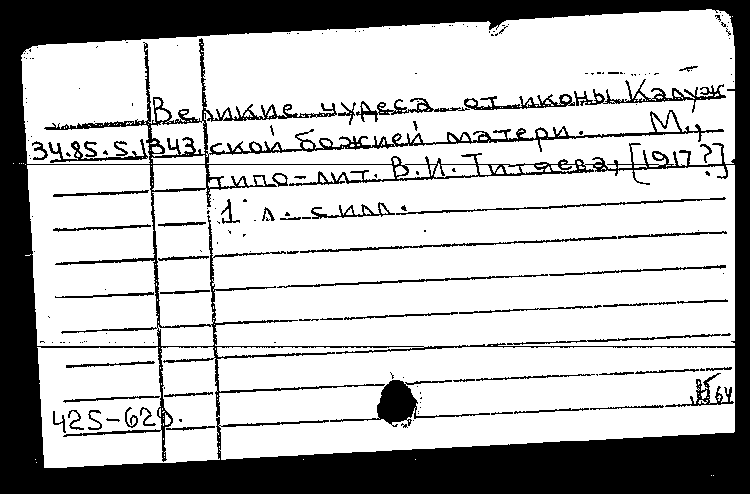 Великие чудеса от иконы Калуж-
34.85.5.1343. ской божией матери. М.,
типо-лит. В.И. Титяева, [1917?].
1 л. с илл.
64
425-629.